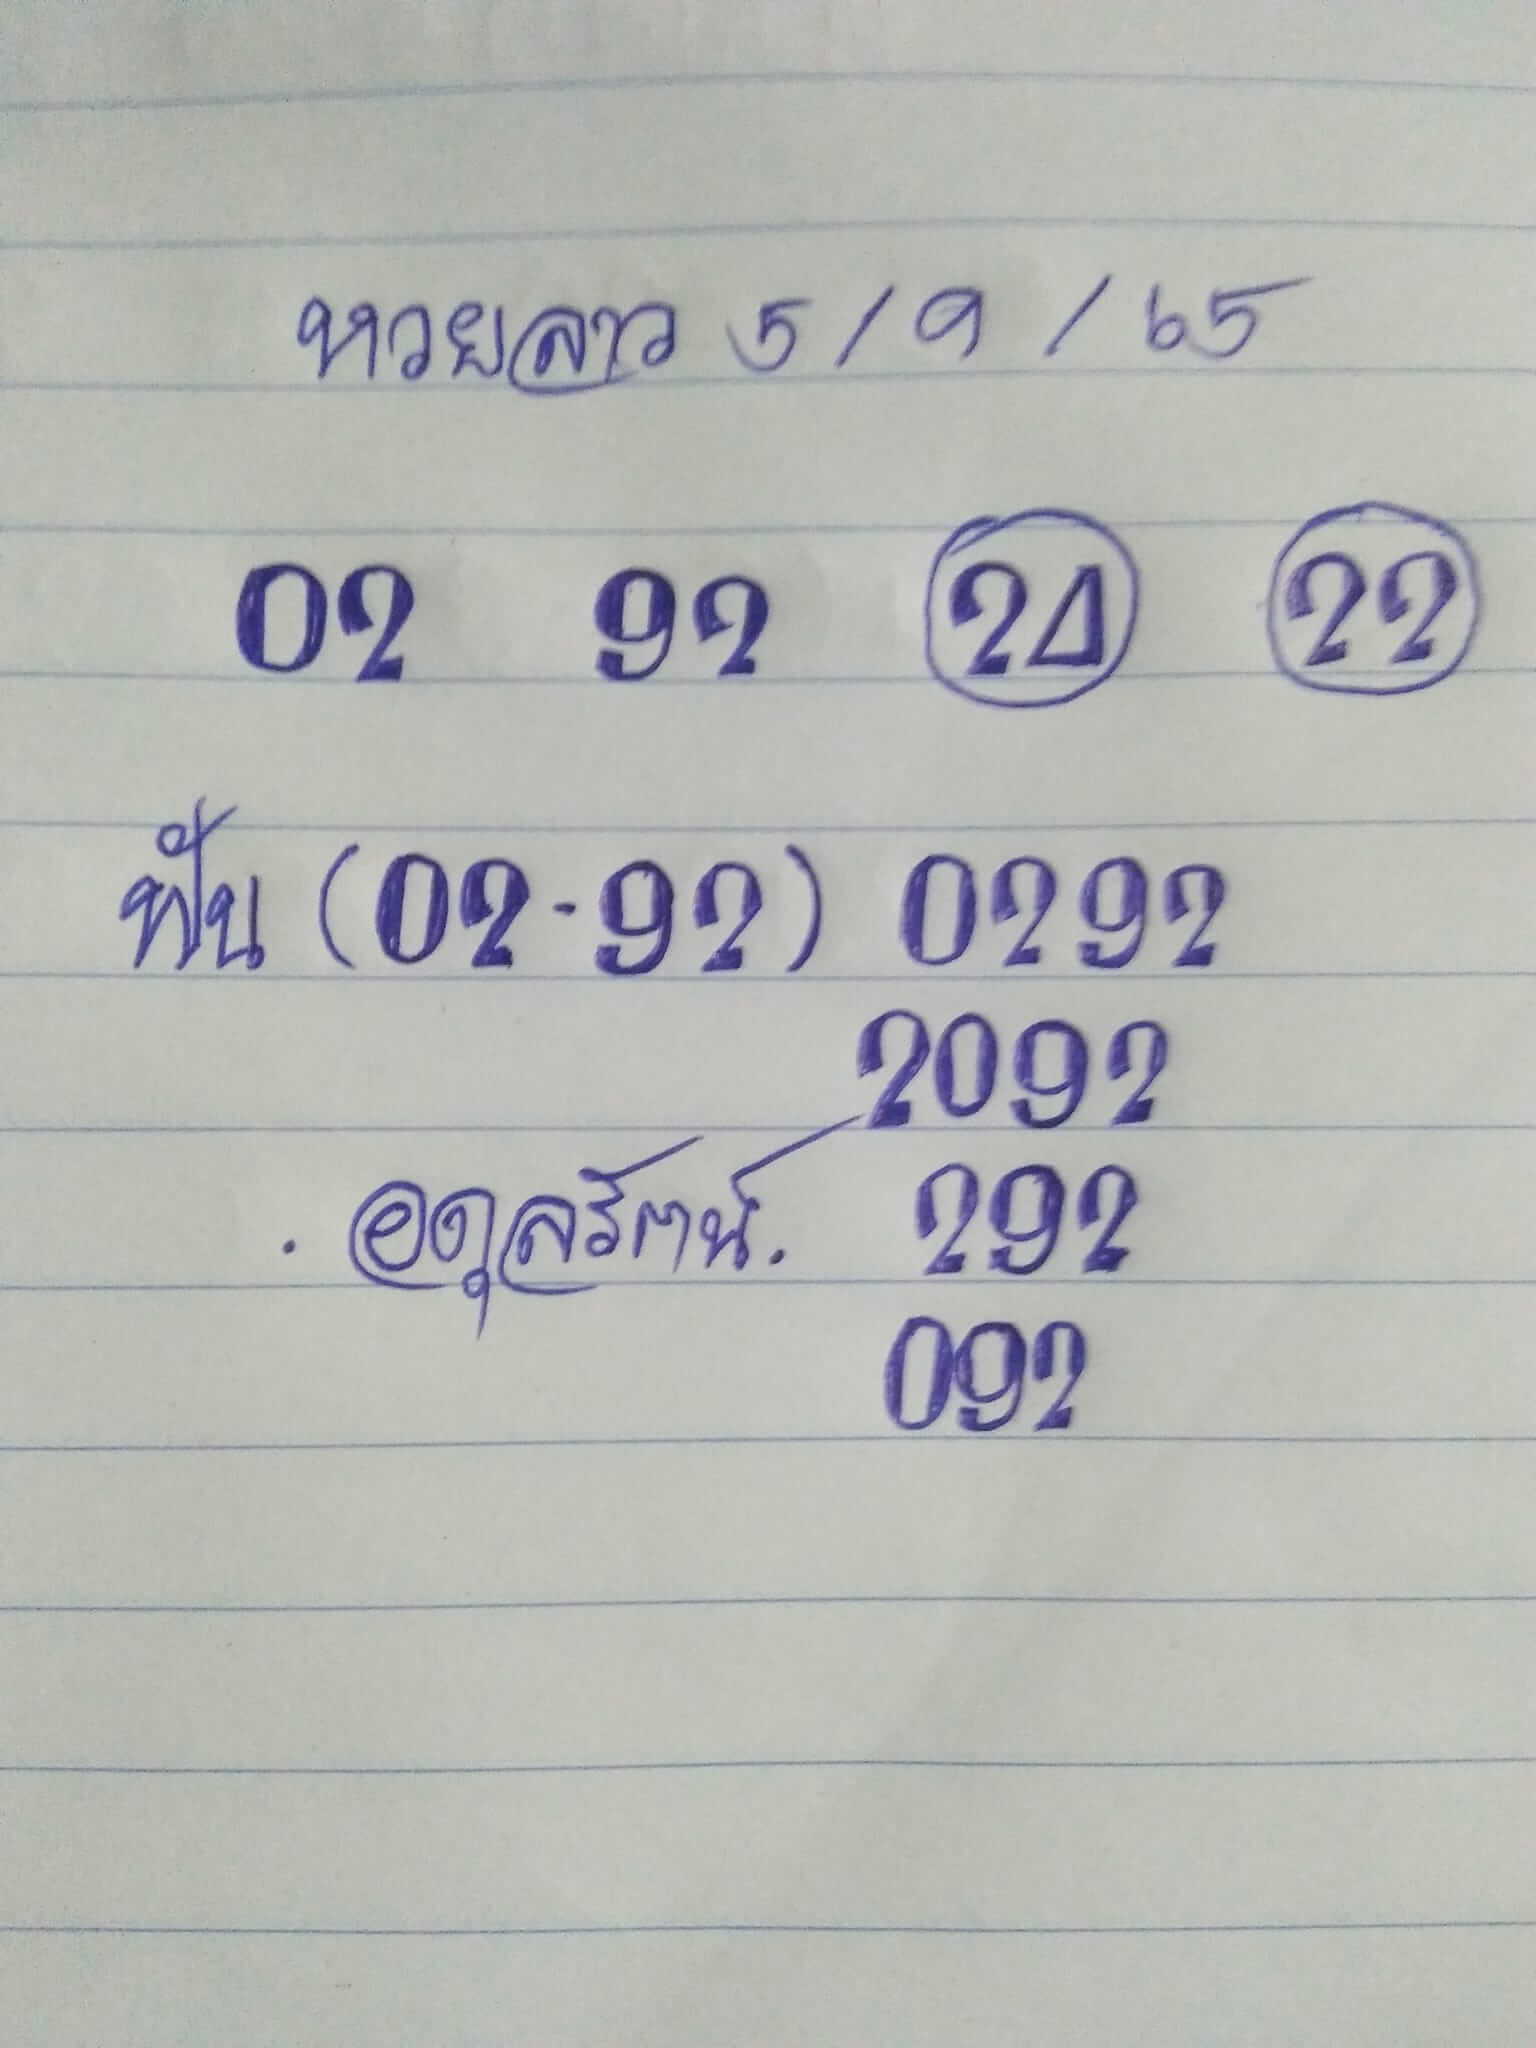 หวยลาว 5/9/65
02 92 24 22
ฟัน (02-92) 0292
2092
. อดุลรัตน์. 292
092